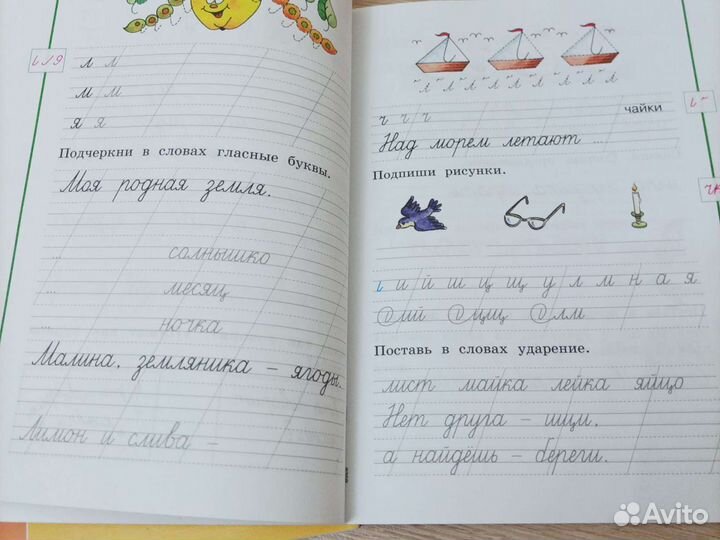 л л
м м
я я
Подчеркни в словах гласные буквы.
Моя родная земля.
... солнышко
... месяц
... ночка
Малина, земляника – ягоды.
Лимон и слива –
ч ч ч чайки
Над морем летают ...
Подпиши рисунки.
и и й ш ц щ у л м н а я
ий цщ лм
Поставь в словах ударение.
лист майка лейка яйцо
Нет друга – ищи,
а найдёшь – береги.
Avito